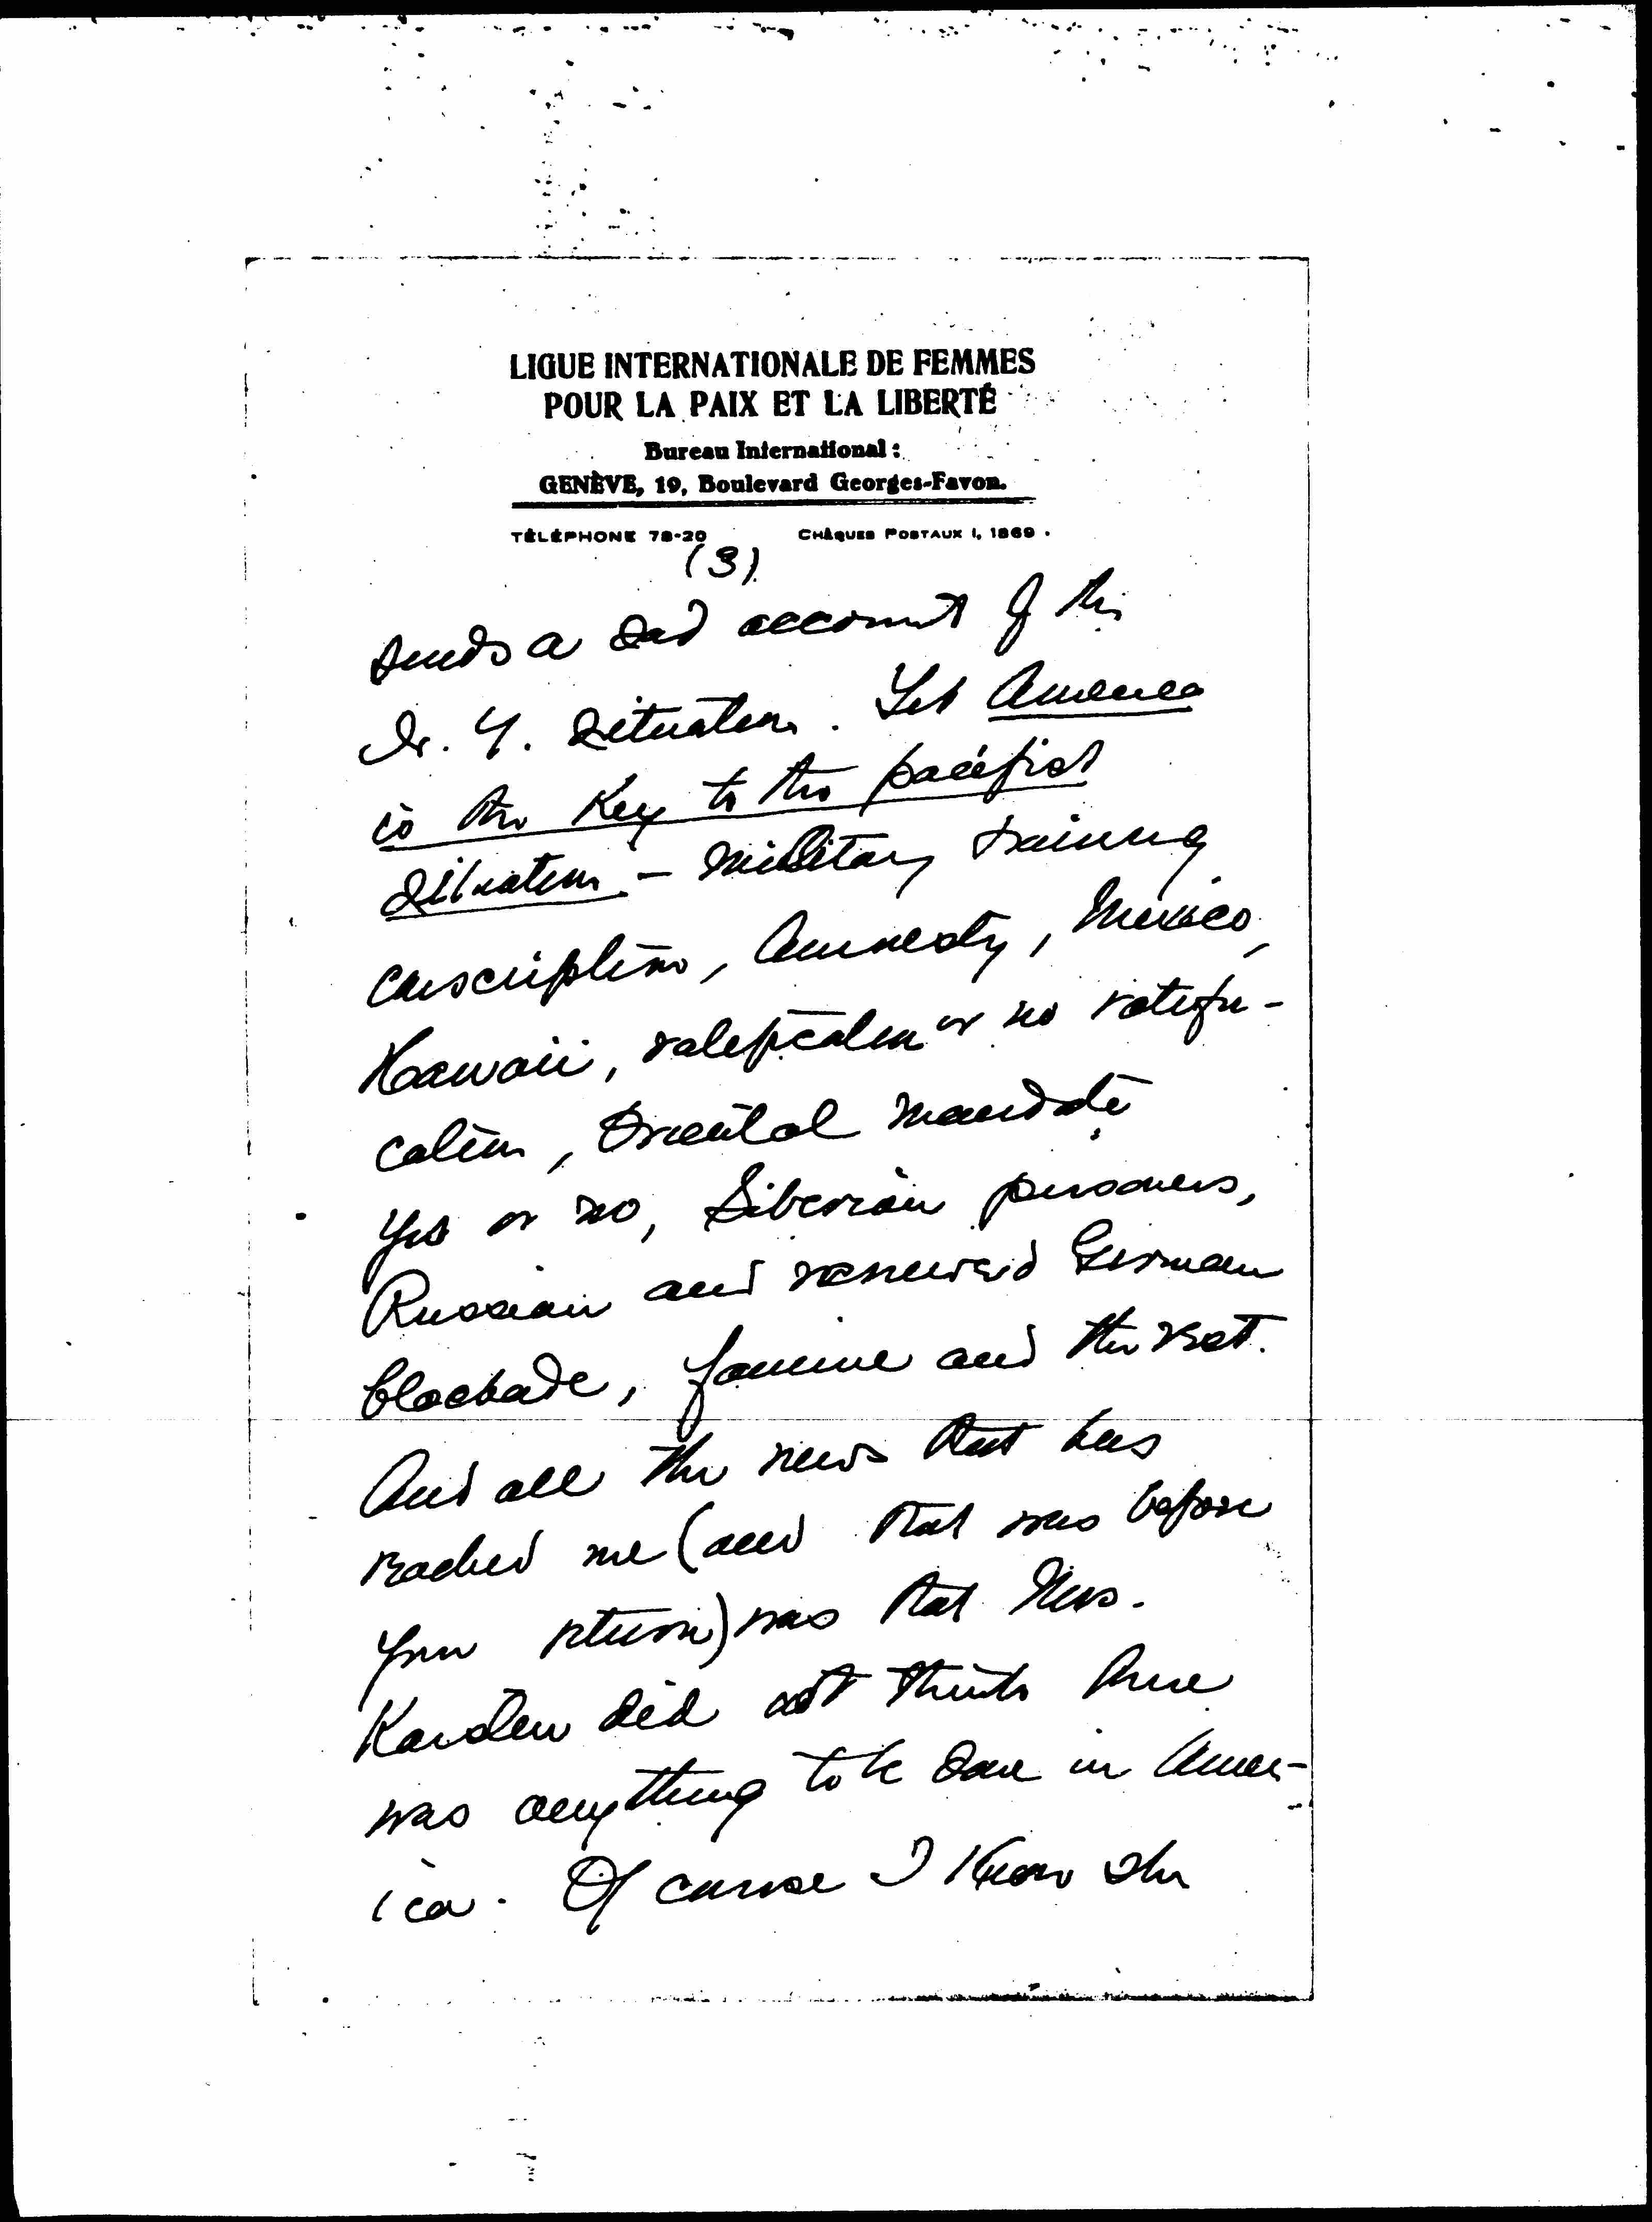 LIGUE INTERNATIONALE DE FEMMES
POUR LA PAIX ET LA LIBERTÉ
Bureau International :
GENÈVE, 19, Boulevard Georges-Favon.
TÉLÉPHONE 78-20 CHÈQUES POSTAUX I, 1869 .
(3)
sends a sad account of the
N. Y. situation. Yet America
is the key to the pacifist
situation - military training
conscription, Amnesty, Mexico,
Hawaii, ratification or no ratifi-
cation, Oriental mandate
yes or no, Siberian prisoners,
Russian and renewed German
blockade, famine and the rest.
And all the news that has
reached me (and that was before
your return) was that Mrs.
Karsten did not think there
was anything to be done in Amer-
ica. Of course I know she